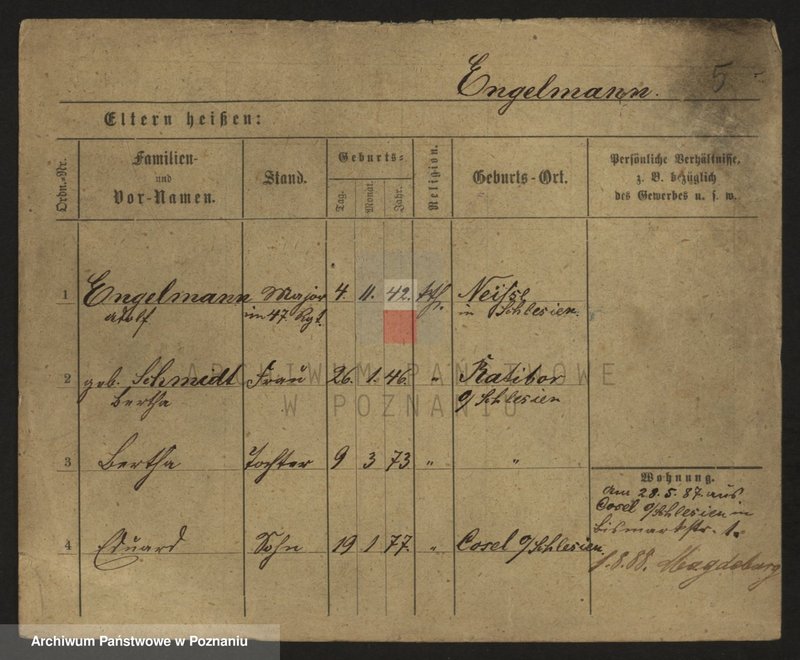 Engelmann. 5
Eltern heißen:
Ordn.-Nr.
Familien-
und
Vor-Namen.
Stand.
Geburts-
Tag.
Monat.
Jahr.
Religion.
Geburts-Ort.
Persönliche Verhältnisse,
z. B. bezüglich
des Gewerbes u. s. w.
1 Engelmann Major 4. 11. 42. kth. Neisse
Adolf im 47. Rgt. in Schlesien.
2 geb. Schmidt Frau 26. 1. 46. " Ratibor
Bertha O/Schlesien
3 Bertha Tochter 9 3 73 " "
4 Eduard Sohn 19 1 77. " Cosel O/Schlesien.
Wohnung.
Am 28. 5. 87. aus
Cosel O/Schlesien in
Bismarkstr. 1.
1.8.88. Magdeburg
ARCHIWUM PAŃSTWOWE
W POZNANIU
Archiwum Państwowe w Poznaniu